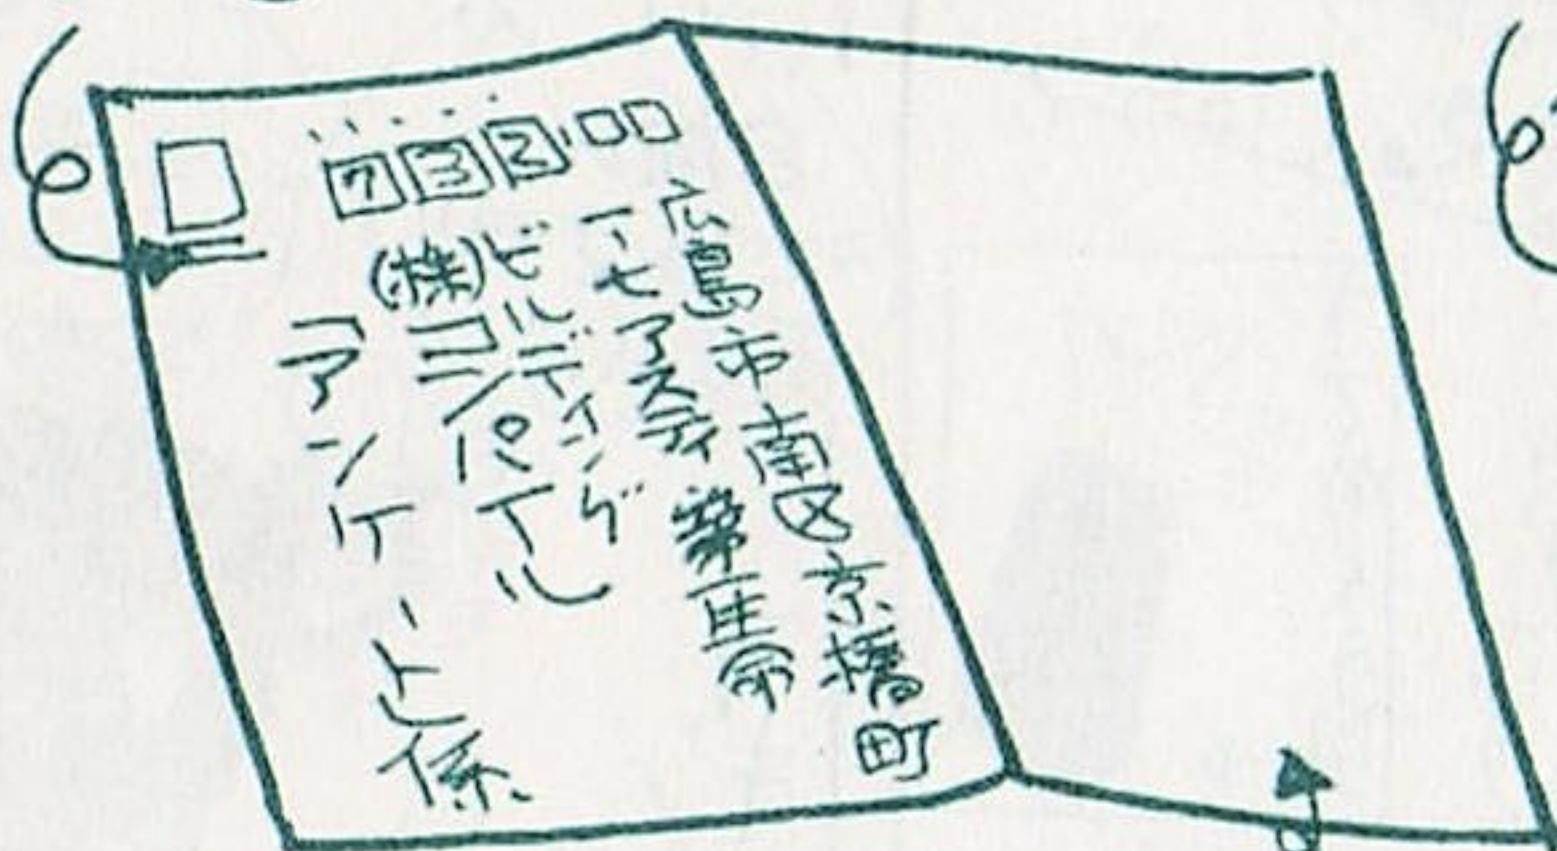 732
広島市南区京橋町
一-七アスティ第一生命
ビルディング
(株)コンパイル
アンケート係